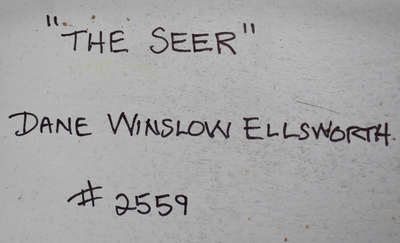 "THE SEER"
DANE WINSLOW ELLSWORTH
# 2559